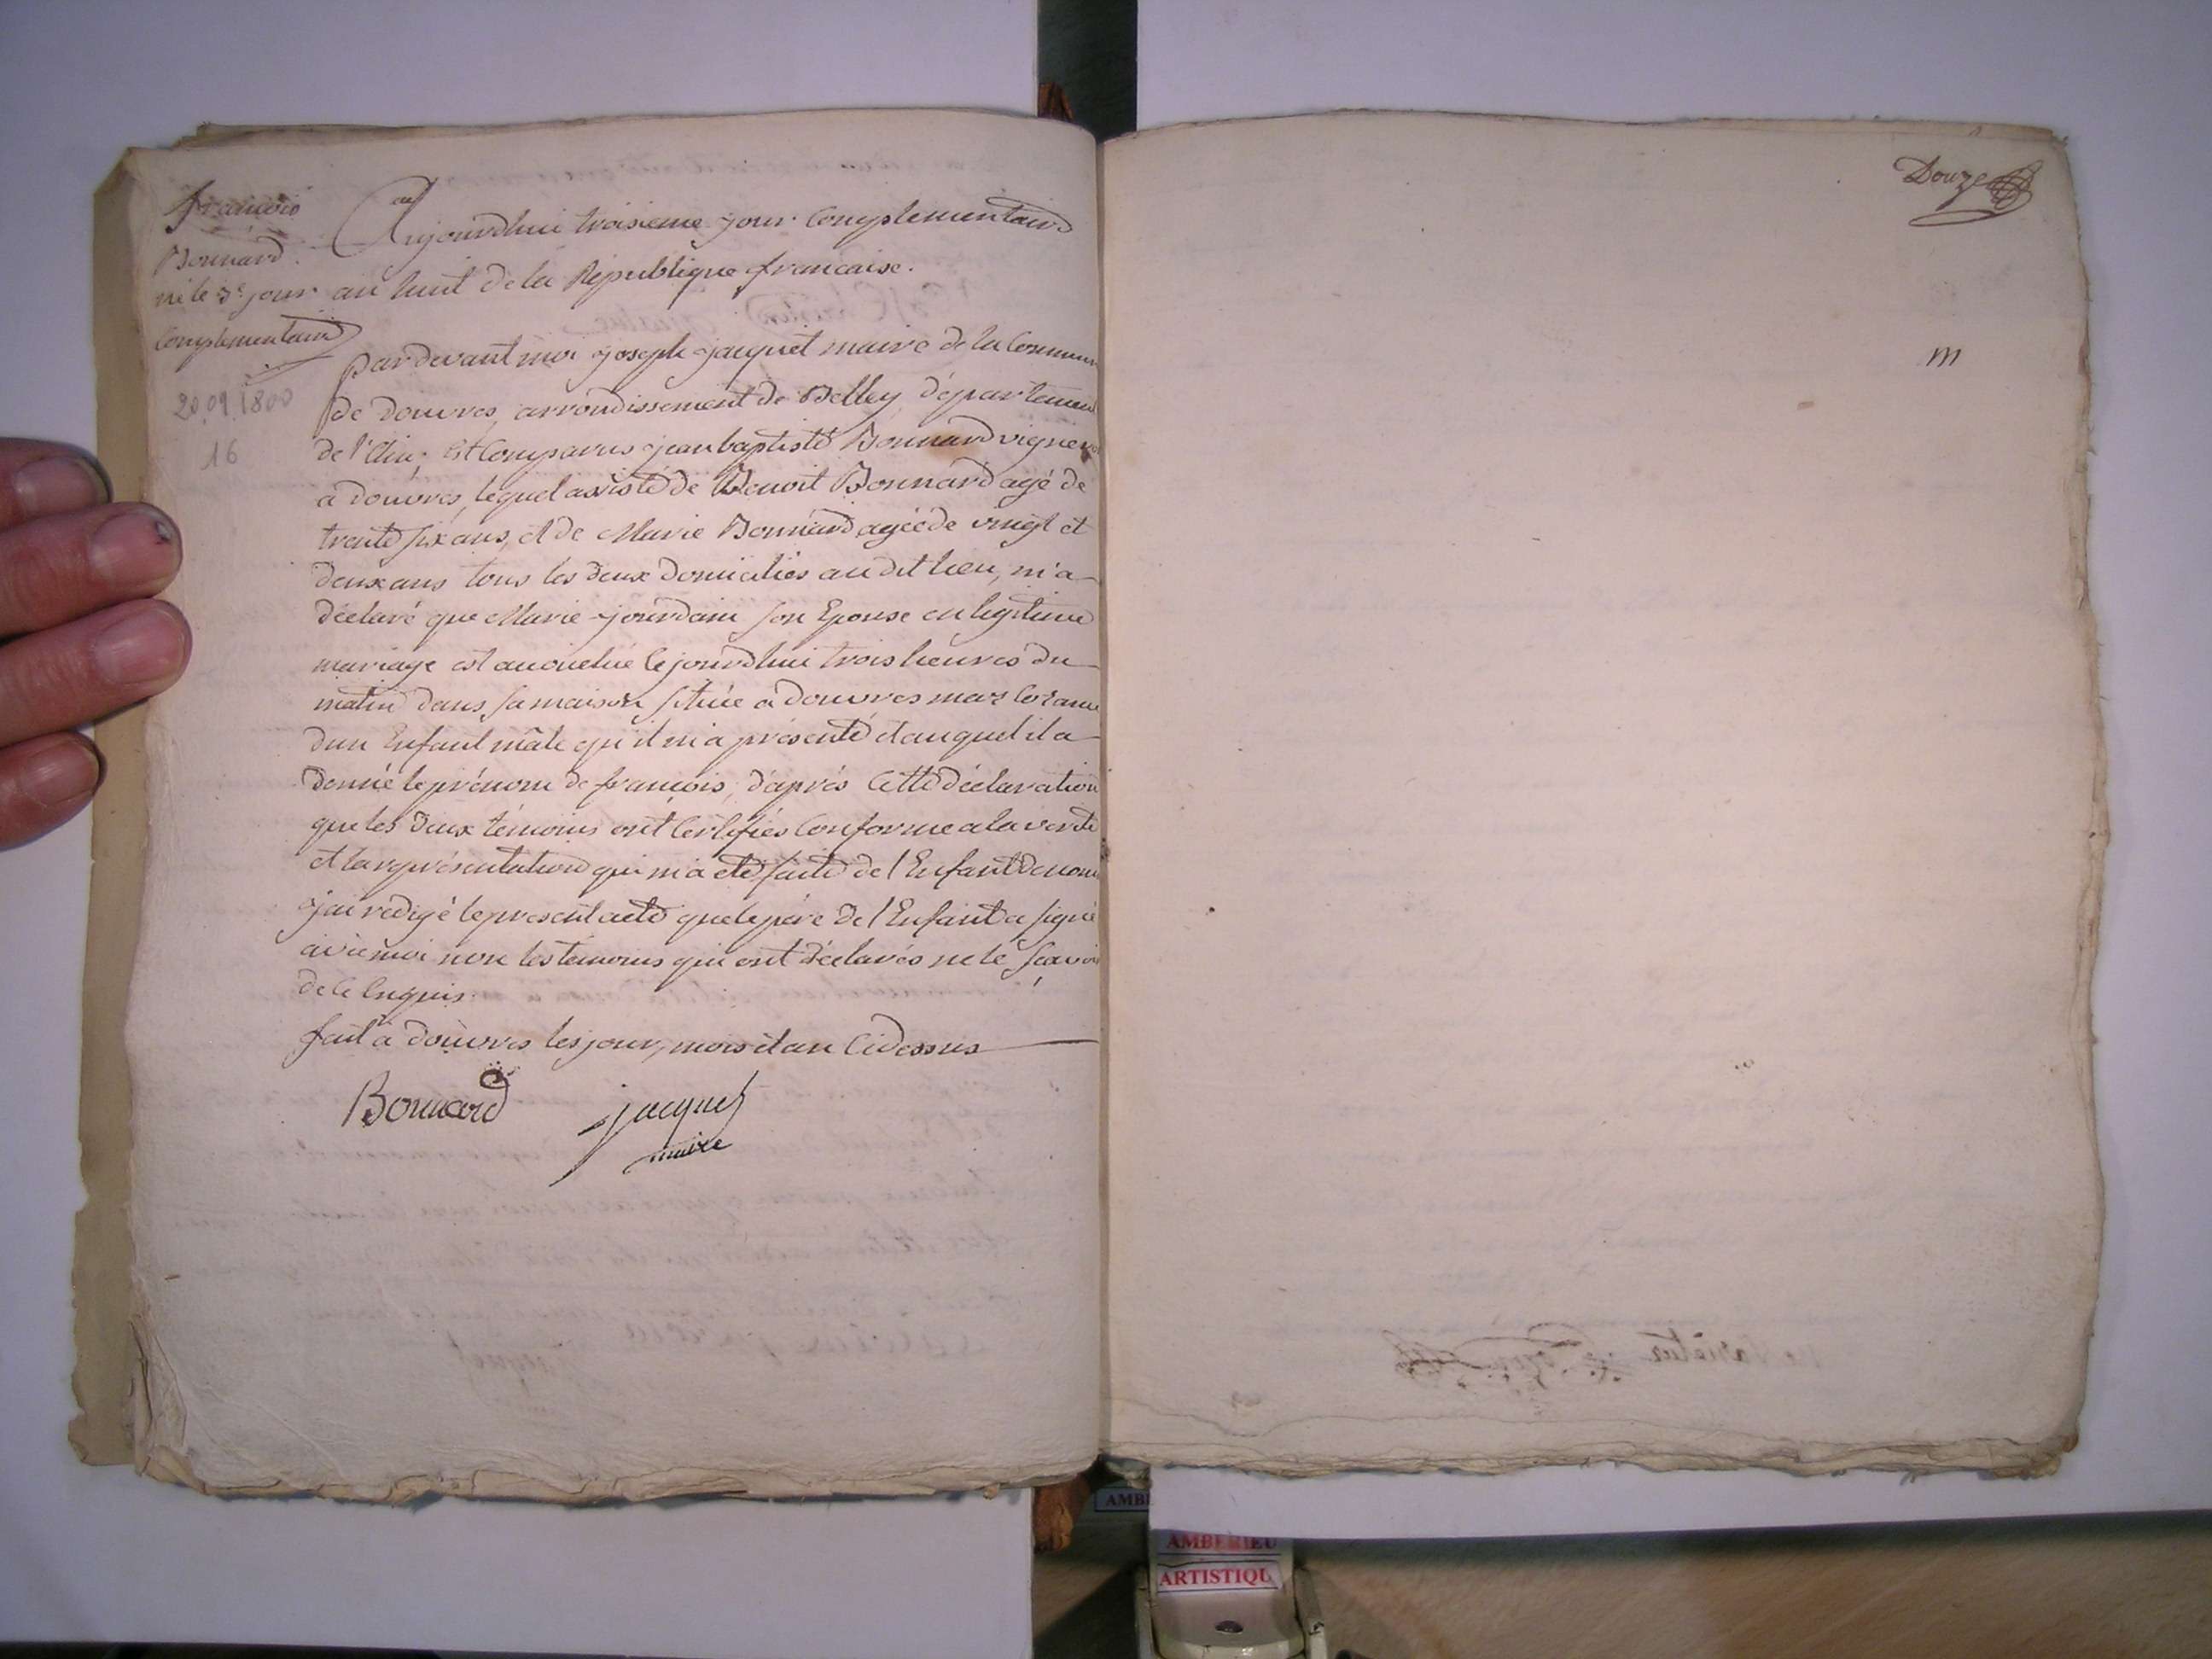 françois
Bonnard.
né le 3e jour
Complementaire
20.09.1800
16
Aujourdhui troisieme jour Complementaire
an huit de la République francaise.
pardevant moi joseph jacquet maire de la Commune
de douvres, arrondissement de Belley, département
de l'Ain; est Comparus jean baptiste Bonnard vigneron
à douvres, lequel assisté de Benoit Bonnard agé de
trente six ans, et de Marie Bonnard agée de vingt et
deux ans tous les deux domiciliés au dit lieu, m'a
déclaré que Marie jourdain son Epouse en legitime
mariage est accouchée Cejourdhui trois heures du
matin dans sa maison située a douvres
dun Enfant mâle qu'il m'a présenté et auquel il a
donné le prénom de françois; d'après Cette déclaration
que les deux témoins ont Certifiés Conforme a la verité
et la représentation qui m'a eté faite de l'Enfant denomé
j'ai redigé le present acte que le père de l'Enfant a signé
avec moi non les témoins qui ont déclarés ne le scavoir
de ce Enquis.
fait à douvres les jour, mois et an Cidessus
Bonnard jacquet
maire
Douze
m
AMBERIEU
ARTISTIQU